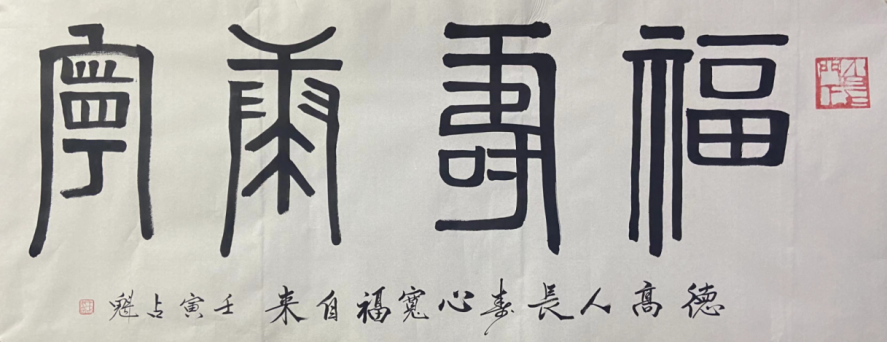 福壽康寧
德高人長壽心寬福自来 壬寅占魁